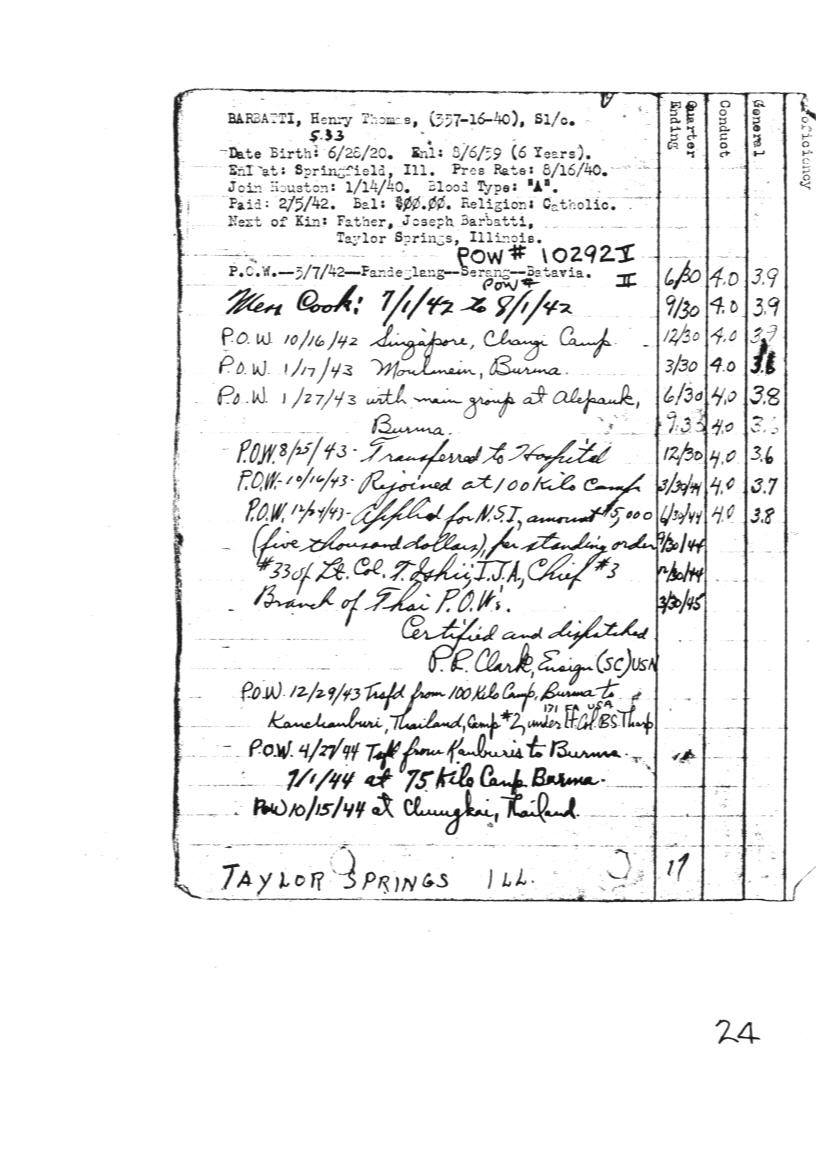 BARBATTI, Henry Thomas, (337-16-40), S1/c.
533
Date Birth: 6/28/20. Enl: 8/6/39 (6 Years).
Enl at: Springfield, Ill. Pres Rate: 8/16/40.
Join Houston: 1/14/40. Blood Type: "A".
Paid: 2/5/42. Bal: $00.00. Religion: Catholic.
Next of Kin: Father, Joseph Barbatti,
Taylor Springs, Illinois.
POW # 10292 V
P.O.W.--3/7/42--Pandeglang--Serang--Batavia.
POW # II
Mess Cook: 7/1/42 to 8/1/42
P.O.W. 10/16/42 Singapore, Changi Camp.
P.O.W. 1/17/43 Moulmein, Burma.
P.O.W. 1/27/43 with main group at Alepauk,
Burma.
P.O.W. 8/25/43 - Transferred to Hospital
P.O.W. - 10/16/43 - Rejoined at 100 Kilo Camp
P.O.W. 12/24/43 - Applied for N.S.I, amount $5,000
(five thousand dollars), per standing order
#33 of Lt. Col. T. Ishii, I.J.A, Chief #3
Branch of Thai P.O.W's.
Certified and dispatched
P.R. Clark, Ensign (SC) USN
P.O.W. 12/29/43 Trafd from 100 Kilo Camp, Burma to
131 FA USA
Kanchanburi, Thailand, Camp #2, under Lt. Col. BS Tharp
P.O.W. 4/27/44 Tsf from Kanburis to Burma.
7/1/44 at 75 Kilo Camp Burma.
POW 10/15/44 at Chungkai, Thailand.
TAYLOR SPRINGS ILL.
Quarter Ending Conduct General Proficiency
6/30 4.0 3.9
9/30 4.0 3.9
12/30 4.0 3.9
3/30 4.0
6/30 4.0 3.8
4.0
12/30 4.0 3.6
3/30/44 4.0 3.7
6/30/44 4.0 3.8
9/30/44
12/30/44
3/30/45
17
24